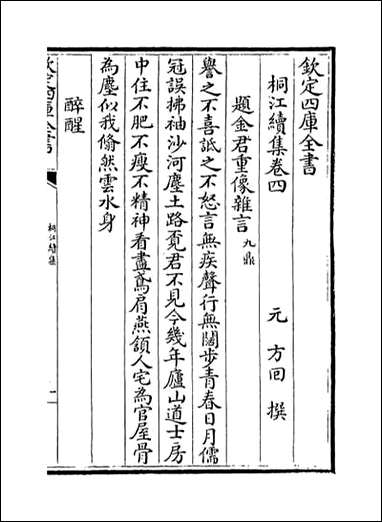 欽定四庫全書
桐江續集卷四
元 方回 撰
題金君重像雜言九鼎
譽之不喜詆之不怒言無疾聲行無闊步青春日月儒
冠誤拂袖沙河塵土路覔君不見今幾年廬山道士房
中住不肥不瘦不精神看盡鳶肩燕頷人宅為官屋骨
為塵似我翛然雲水身
醉醒
欽定四庫全書
桐江續集
一